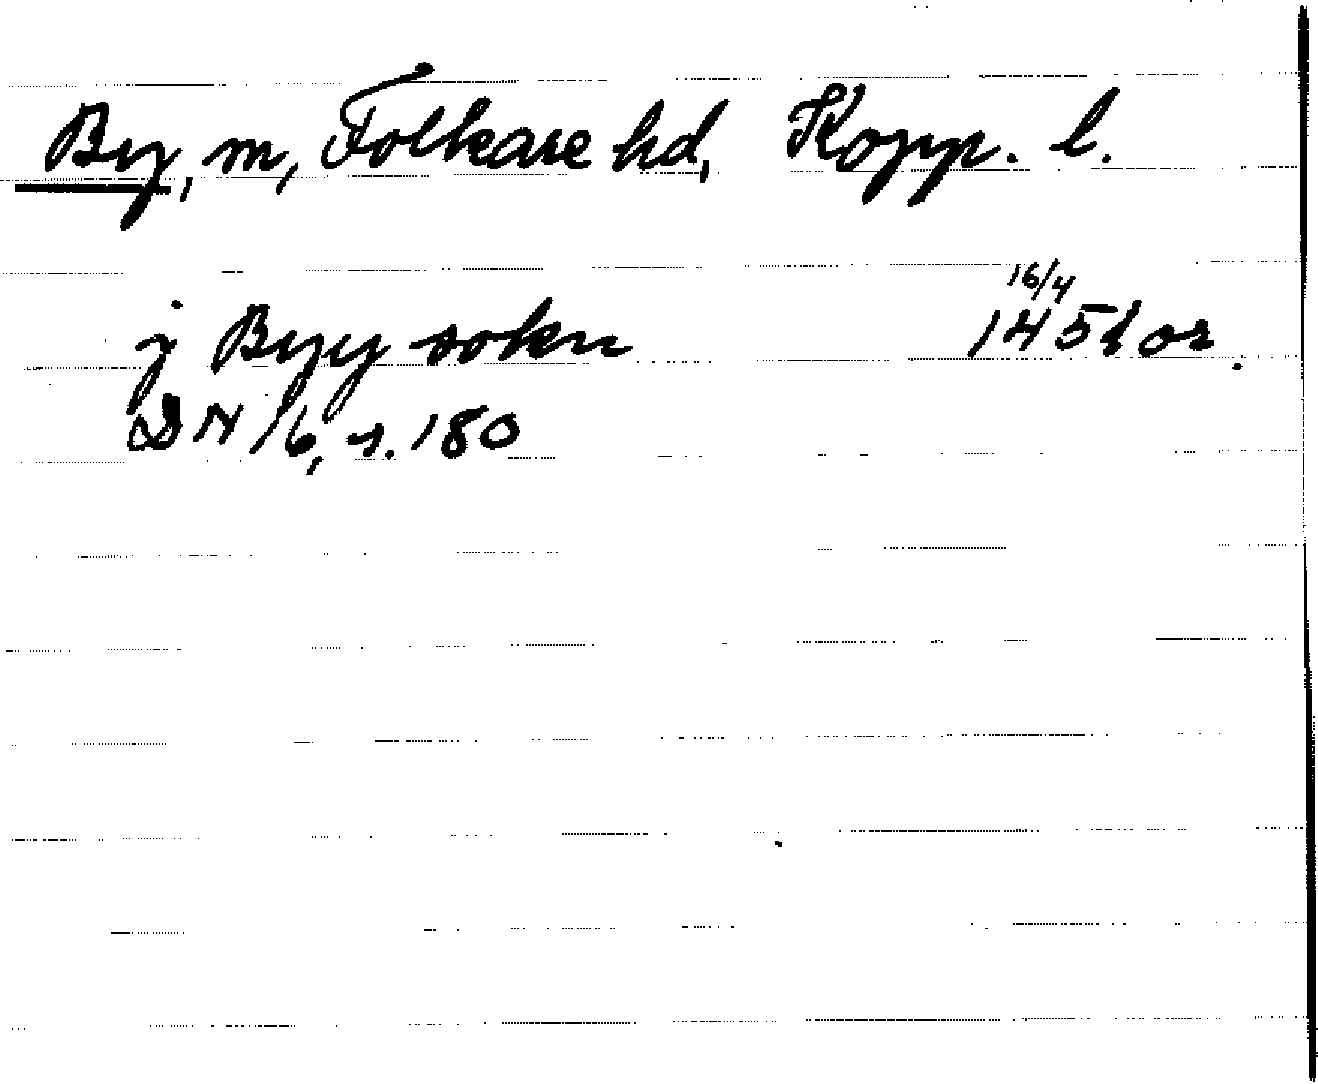 By, sn, Folkare hd, Kopp. l.
j Byy sokn 16/4 1451 or.
DN 16, s. 180